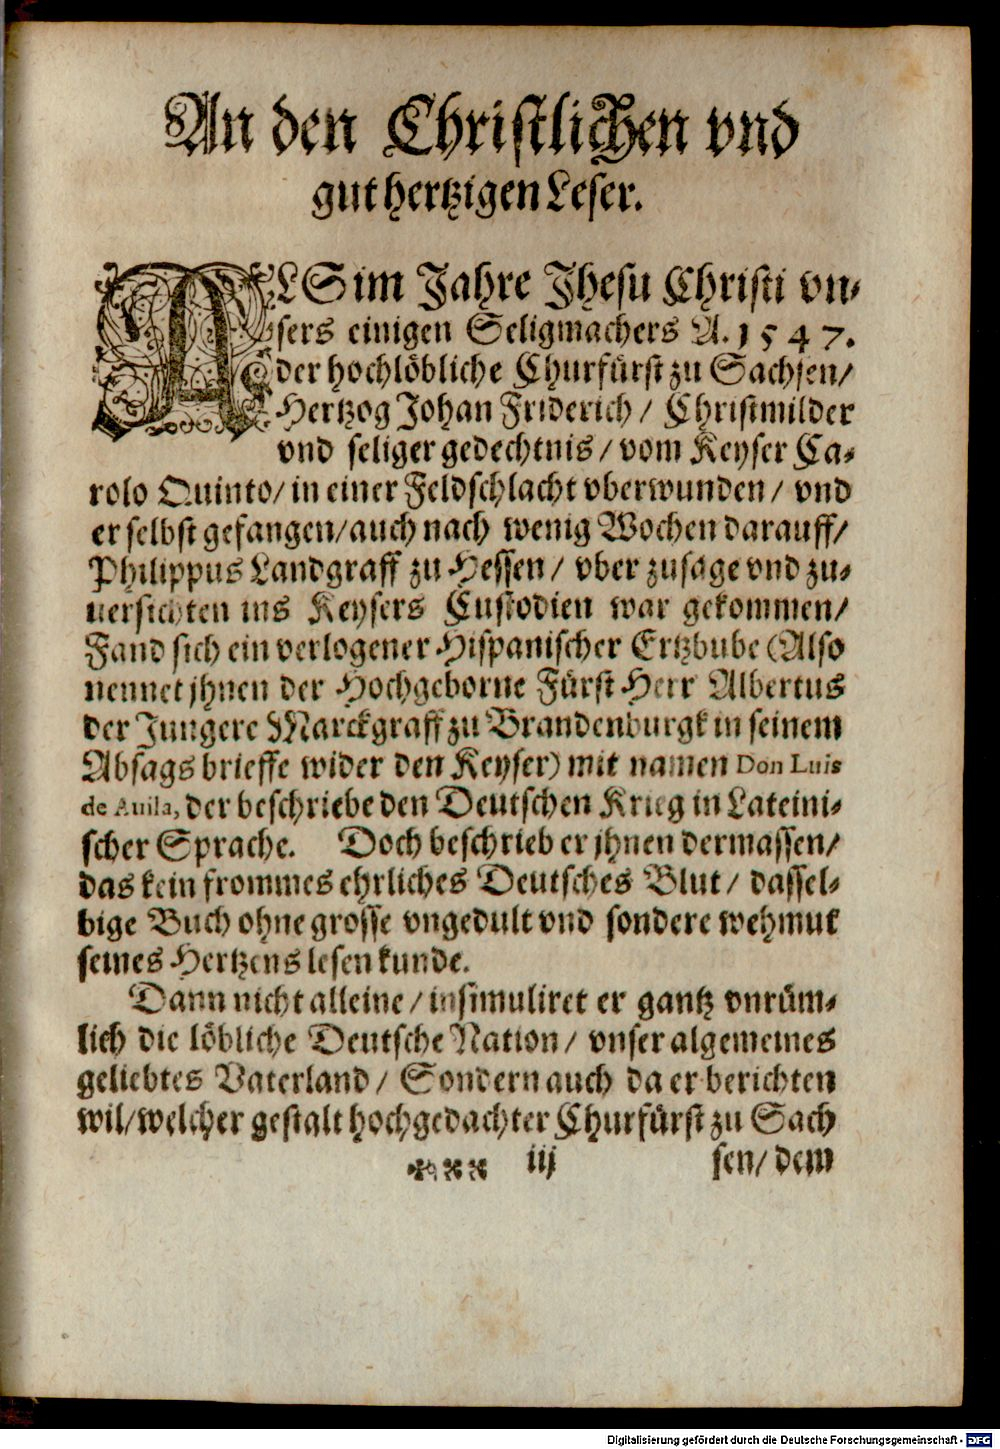 An den Christlichen vnd
guthertzigen Leser.
ALS im Jahre Jhesu Christi vn⸗
sers einigen Seligmachers A. 1547.
der hochlöbliche Churfürst zu Sachsen/
Hertzog Johan Friderich/ Christmilder
vnd seliger gedechtnis/ vom Keyser Ca⸗
rolo Quinto/ in einer Feldschlacht vberwunden/ vnd
er selbst gefangen/ auch nach wenig Wochen darauff/
Philippus Landgraff zu Hessen/ vber zusage vnd zu⸗
uersichten ins Keysers Custodien war gekommen/
Fand sich ein verlogener Hispanischer Ertzbube (Also
nennet jhnen der Hochgeborne Fürst Herr Albertus
der Jungere Marckgraff zu Brandenburgk in seinem
Absags brieffe wider den Keyser) mit namen Don Luis
de Auila, der beschriebe den Deutschen Krieg in Lateini⸗
scher Sprache. Doch beschrieb er jhnen dermassen/
das kein frommes ehrliches Deutsches Blut/ dassel⸗
bige Buch ohne grosse vngedult vnd sondere wehmut
seines Hertzens lesen kunde.
Dann nicht alleine/ insimuliret er gantz vnrüm⸗
lich die löbliche Deutsche Nation/ vnser algemeines
geliebtes Vaterland/ Sondern auch da er berichten
wil/ welcher gestalt hochgedachter Churfürst zu Sach
iij sen/ dem
Digitalisierung gefördert durch die Deutsche Forschungsgemeinschaft - DFG